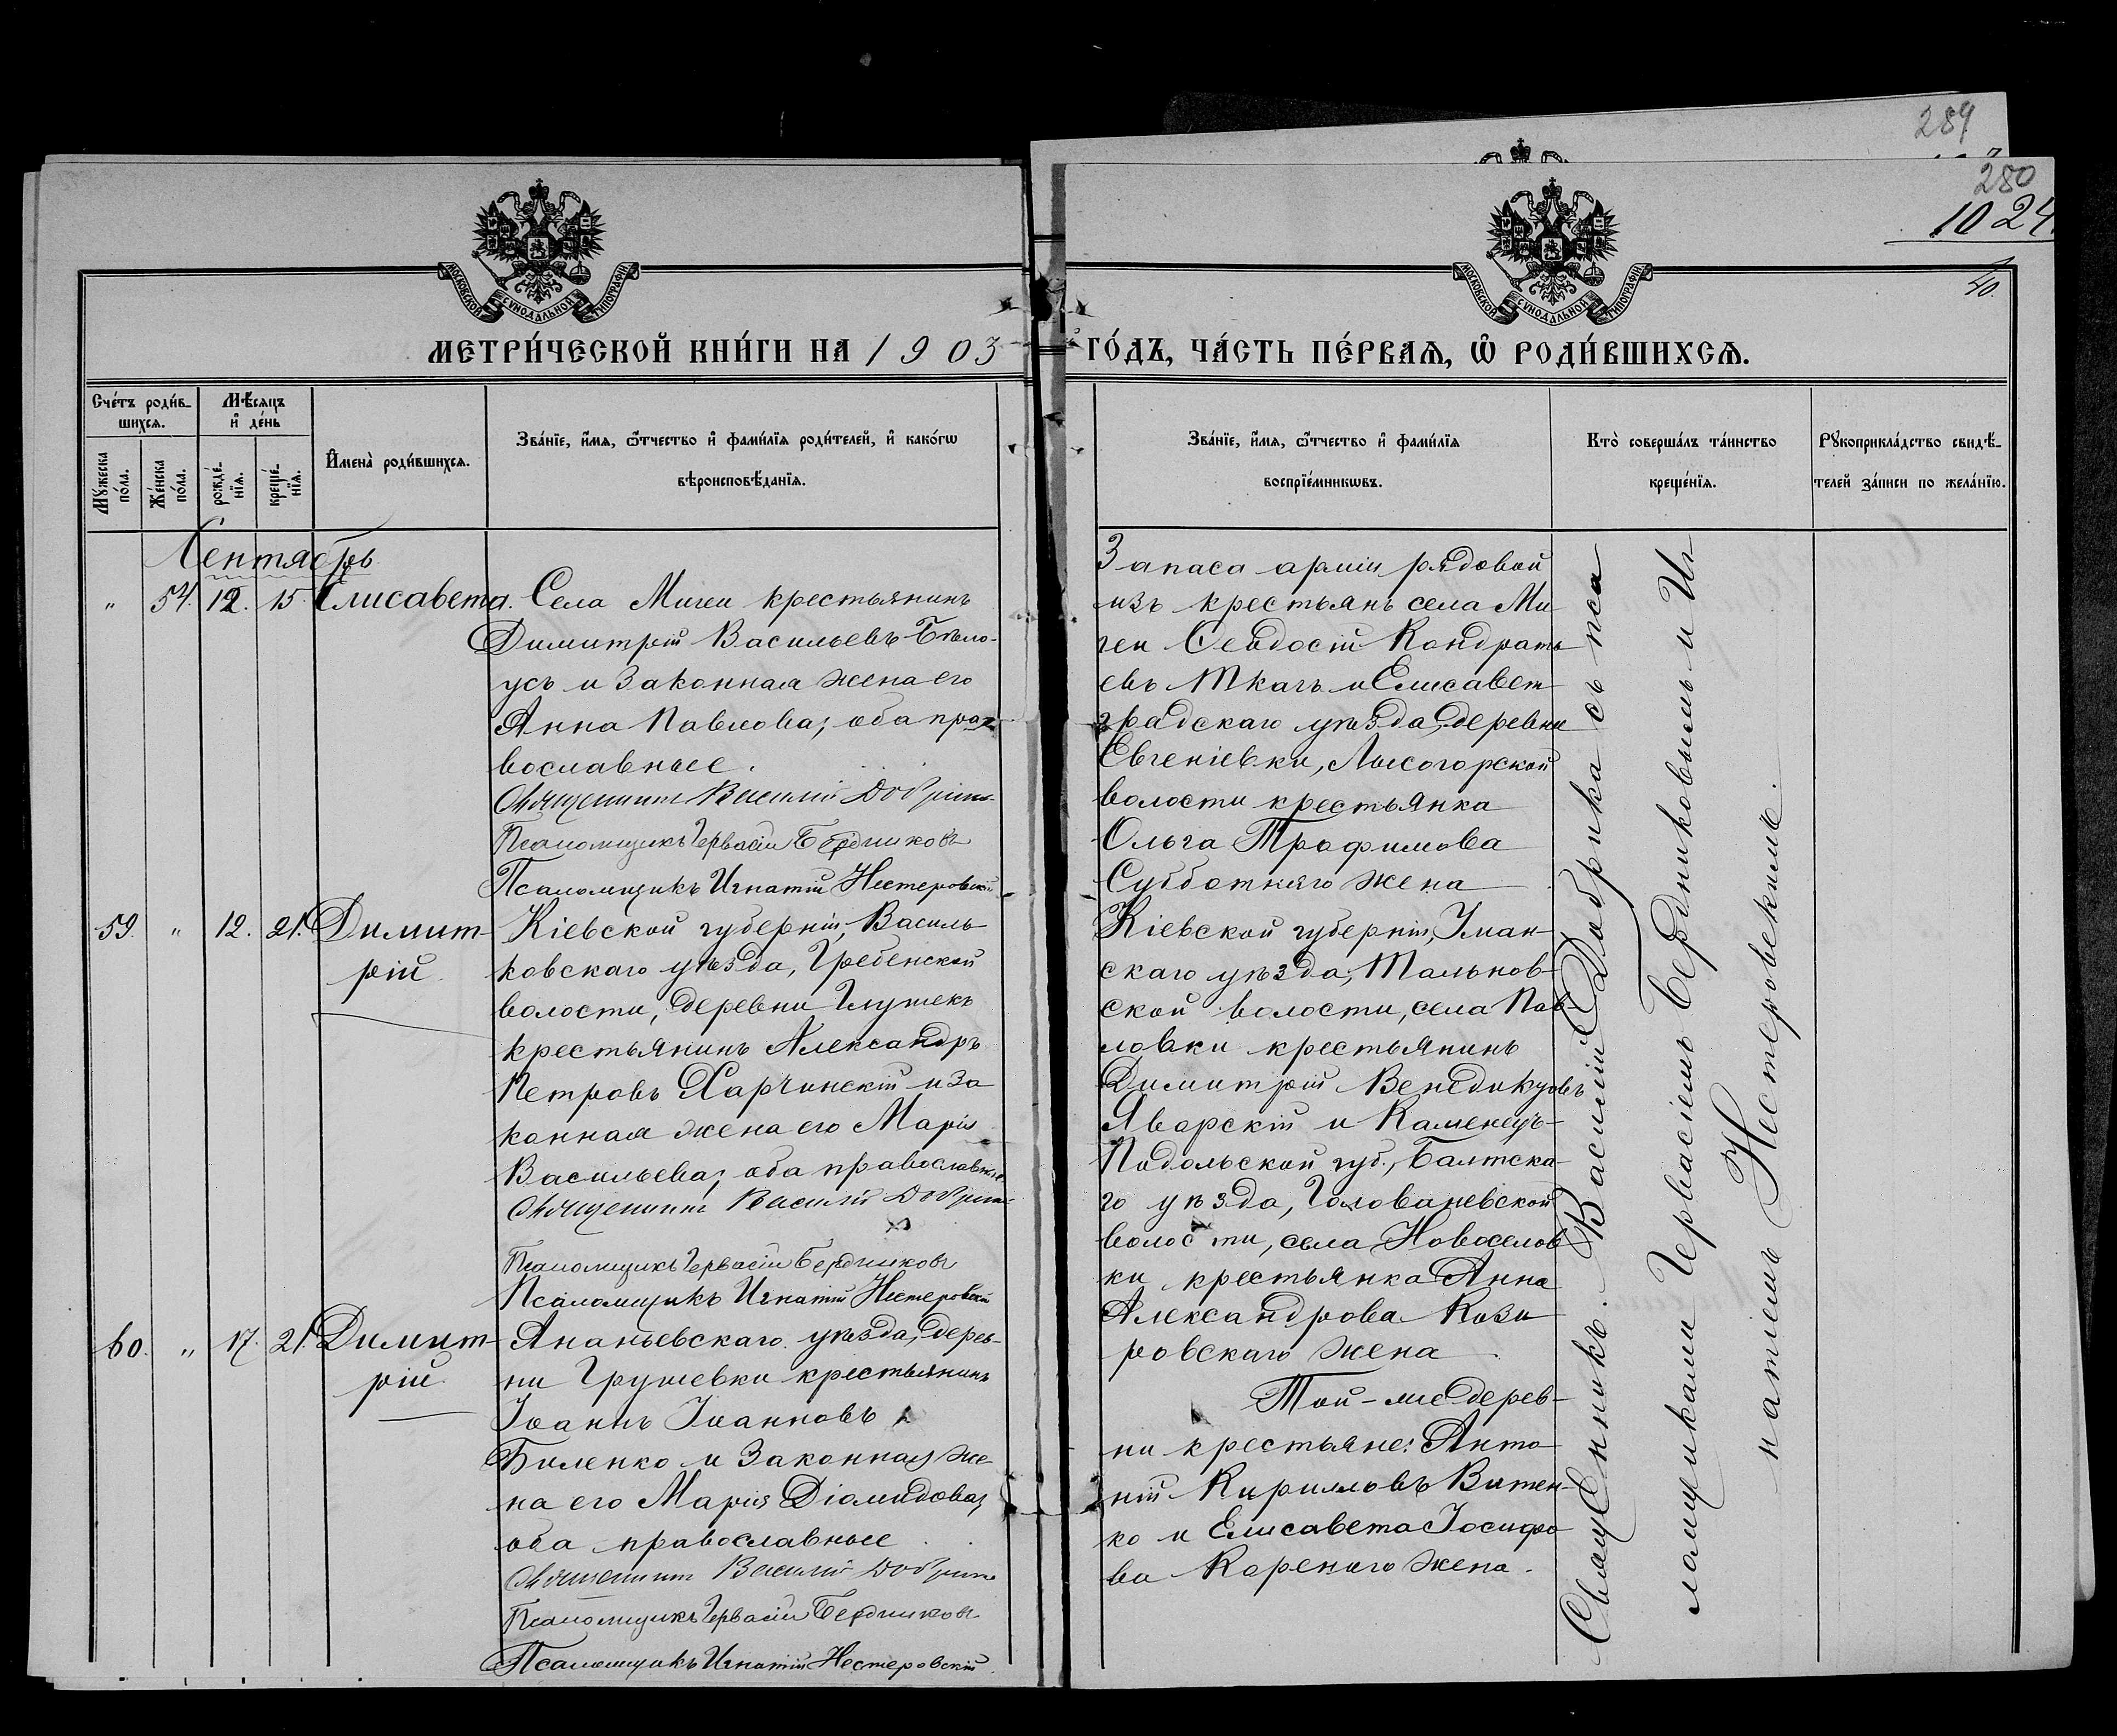 289
280
1024
40.
МОСКОВСКОЙ СѴНОДАЛЬНОЙ ТИПОГРАФІИ
МОСКОВСКОЙ СѴНОДАЛЬНОЙ ТИПОГРАФІИ
МЕТРИ́ЧЕСКОЙ КНИ́ГИ НА 1903
ГО́ДЪ, ЧА́СТЬ ПЕ́РВАѦ, Ѡ҆ РОДИ́ВШИХСѦ.
Сче́тъ роди́в-
шихсѧ.
Мѣ́сѧцъ
и҆ де́нь
Мꙋ́жеска
по́ла.
Же́нска
по́ла.
рожде́-
нїѧ.
креще́-
нїѧ.
И҆мена̀ роди́вшихсѧ.
Зва́нїе, и҆́мѧ, ѻ҆́тчество и҆ фами́лїѧ роди́телей, и҆ како́гѡ
вѣроисповѣ́данїѧ.
Зва́нїе, и҆́мѧ, ѻ҆́тчество и҆ фами́лїѧ
воспрїе́мникѡвъ.
Кто̀ соверша́лъ та́инство
креще́нїѧ.
Рꙋкоприкла́дство свидѣ́-
телей за́писи по жела́нїю.
Сентябрь
" 54. 12. 15. Елисавета.
Села Мигеи крестьянинъ
Димитрій Васильевъ Бѣло-
усъ и законная жена его
Анна Павлова; оба пра-
вославные.
Священникъ Василій Добрика
Псаломщикъ Гервасій Бердниковъ
Псаломщикъ Игнатій Нестеровскій
Запаса арміи рядовой
изъ крестьянъ села Ми
геи Ѳеодосій Кондрать
евъ Ткачъ и Елисавет
градскаго уѣзда, деревни
Евгеніевки, Лысогорской
волости крестьянка
Ольга Трофимова
Субботняго жена
59. " 12. 21. Димит-
рій
Кіевской губерніи, Василь-
ковскаго уѣзда, Гребенской
волости, деревни Глушекъ
крестьянинъ Александръ
Петровъ Харчинскій и за
конная жена его Марія
Васильева; оба православные
Священникъ Василій Добрика
Псаломщикъ Гервасій Бердниковъ
Псаломщикъ Игнатій Нестеровскій
Кіевской губерніи, Уман-
скаго уѣзда, Тальнов-
ской волости, села Пав-
ловки крестьянинъ
Димитрій Венедиктовъ
Яворскій и Каменецъ-
Подольской губ., Балтска-
го уѣзда, Голованевской
волости, села Новоселов
ки крестьянка Анна
Александрова Кози
ровскаго жена
60. " 17. 21. Димит-
рій
Ананьевскаго уѣзда, дерев-
ни Грушевки крестьянинъ
Іоаннъ Іоанновъ
Биленко и законная же-
на его Марія Діомидова;
оба православные
Священникъ Василій Добрика
Псаломщикъ Гервасій Бердниковъ
Псаломщикъ Игнатій Нестеровскій
Той-же дерев-
ни крестьяне: Анто
ній Кирилловъ Витен-
ко и Елисавета Іосифо
ва Коренаго жена.
Священникъ Василій Добрика съ пса
ломщиками Гервасіемъ Бердниковымъ и Иг
натіемъ Нестеровскимъ.